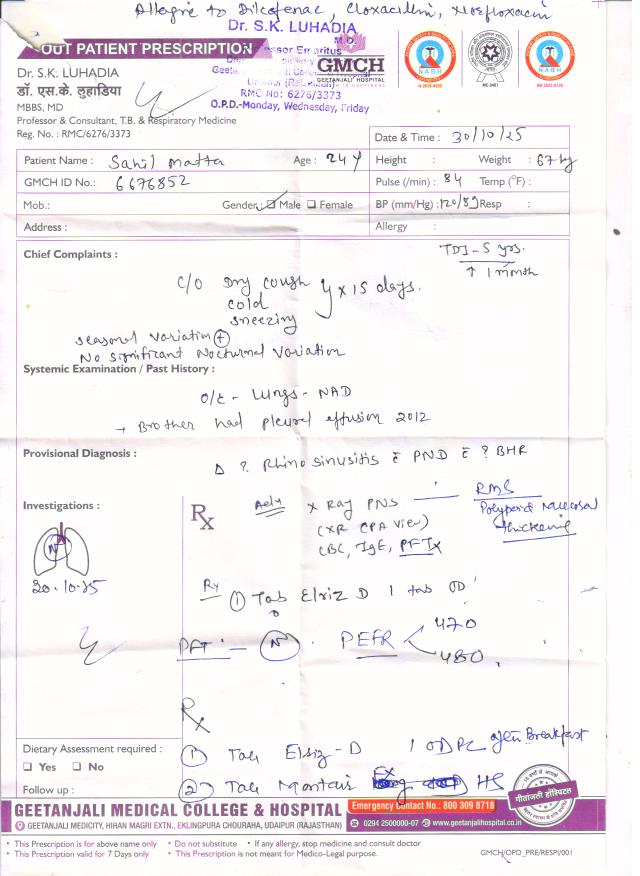 Allergic to Diclofenac, Cloxacillin,
Dr. S.K. LUHADIA
M.D.
OUT PATIENT PRESCRIPTION
Dr. S.K. LUHADIA
डॉ. एस.के. लुहाडिया
MBBS, MD
Professor & Consultant, T.B. & Respiratory Medicine
Reg. No. : RMC/6276/3373
RMC No: 6276/3373
O.P.D.-Monday, Wednesday, Friday
GMCH
GEETANJALI HOSPITAL
NABH
NABH
Date & Time : 30/10/25
Patient Name : Sahil Matta Age : 24 y Height : Weight : 67 kg
GMCH ID No.: 6676852 Pulse (/min) : 84 Temp (°F) :
Mob.: Gender: Male Female BP (mm/Hg) : 120/89 Resp :
Address : Allergy :
Chief Complaints :
TDI - 5 yrs.
↑ 1 month
C/O Dry cough
cold
sneezing
x 15 days.
seasonal variation +
No significant Nocturnal variation
Systemic Examination / Past History :
O/E - Lungs - NAD
→ Brother had pleural effusion 2012
Provisional Diagnosis :
Δ ? Rhinosinusitis c PND c ? BHR
Investigations :
Rx
Adv X Ray PNS RMS
Polypoid Mucosal
thickening
CBC, IgE, PFT
N
30.10.25
Rx 1 Tab Elriz D 1 tab OD
PFT - N PEFR 470
480
Rx
1 Tab Elriz-D 1 OD PC after Breakfast
2 Tab Montair FX HS
Dietary Assessment required :
Yes No
Follow up :
गीतांजली हॉस्पिटल
GEETANJALI MEDICAL COLLEGE & HOSPITAL
Emergency Contact No.: 800 309 8718
GEETANJALI MEDICITY, HIRAN MAGRI EXTN., EKLINGPURA CHOURAHA, UDAIPUR (RAJASTHAN)
0294 2500000-07 www.geetanjalihospital.co.in
• This Prescription is for above name only • Do not substitute • If any allergy, stop medicine and consult doctor
• This Prescription valid for 7 Days only • This Prescription is not meant for Medico-Legal purpose.
GMCH/OPD_PRE/RESPI/001